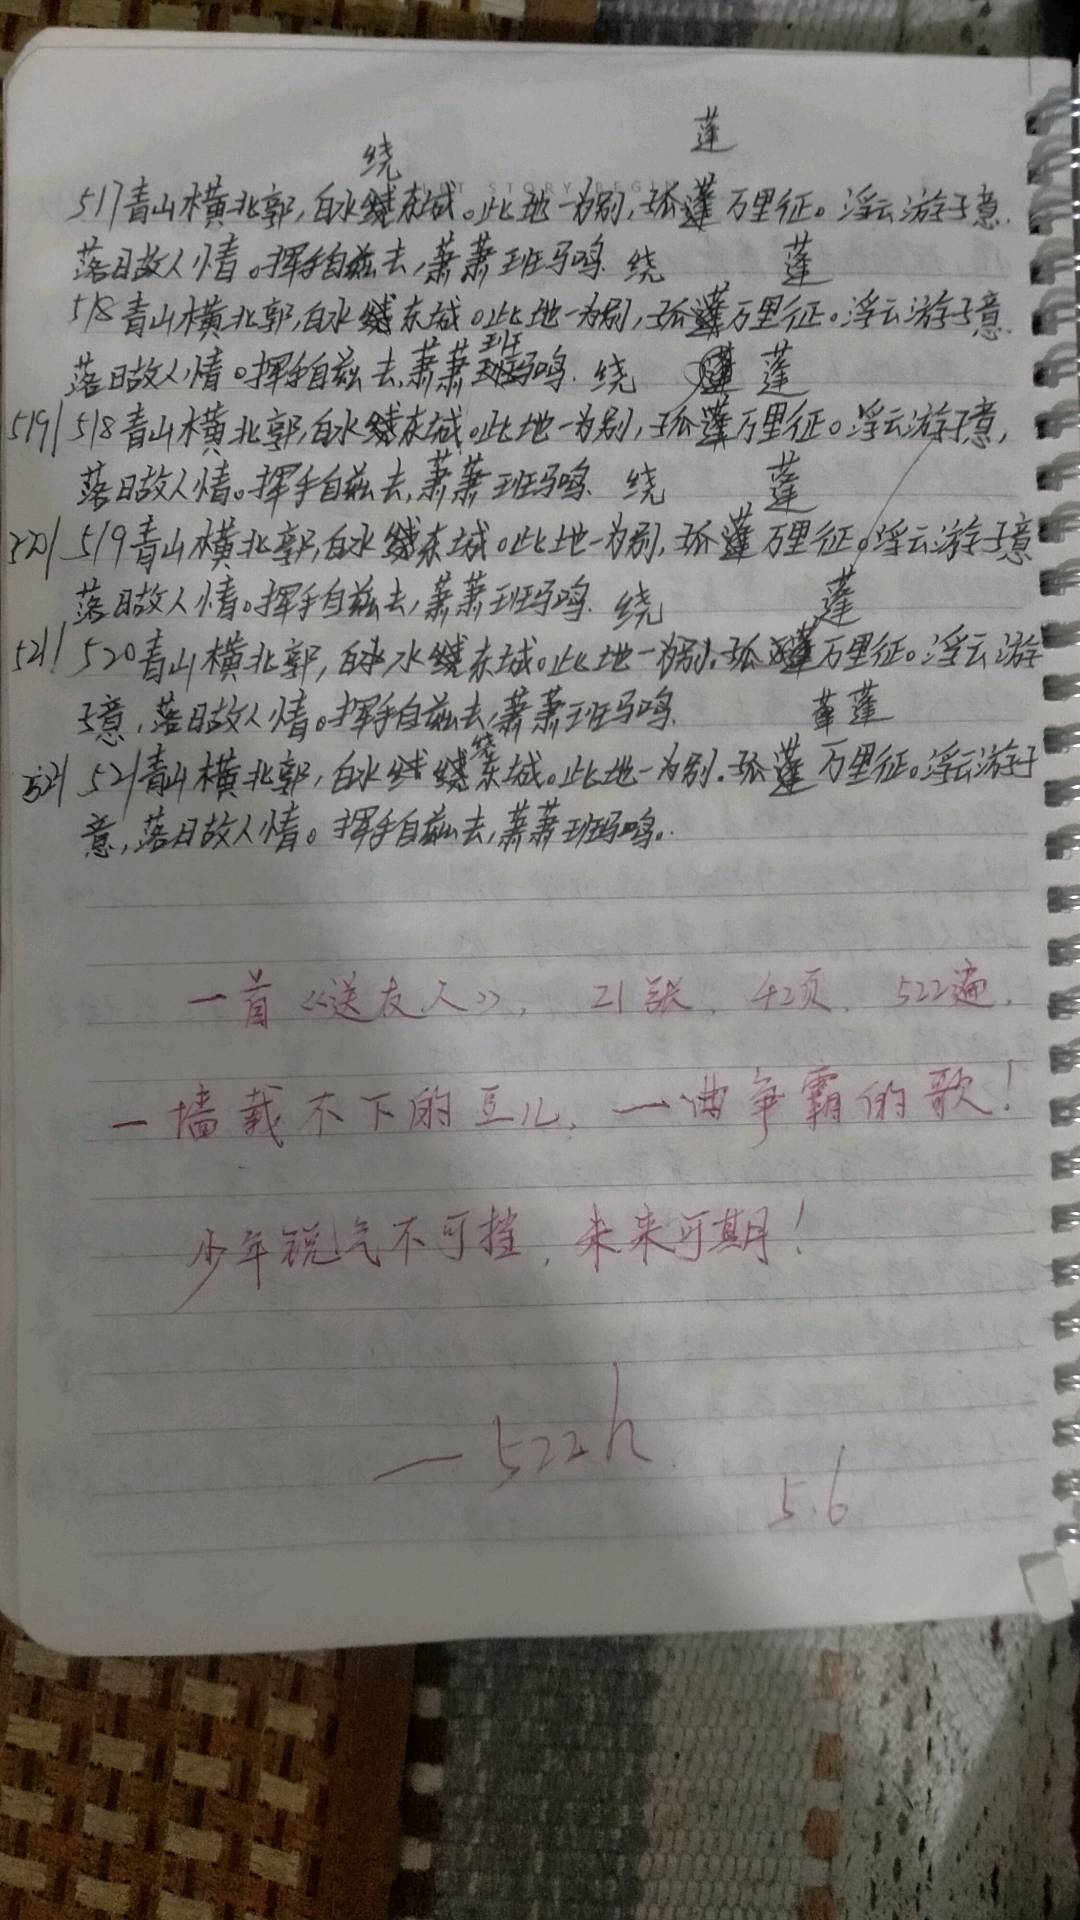 绕 蓬
517青山横北郭,白水绕东城。此地一为别,孤蓬万里征。浮云游子意.
落日故人情。挥手自兹去,萧萧班马鸣. 绕 蓬
518青山横北郭,白水绕东城。此地一为别,孤蓬万里征。浮云游子意.
班
落日故人情。挥手自兹去,萧萧班马鸣. 绕 蓬
519/ 518青山横北郭,白水绕东城。此地一为别,孤蓬万里征。浮云游子意,
落日故人情。挥手自兹去,萧萧班马鸣. 绕 蓬
520/ 519青山横北郭,白水绕东城。此地一为别,孤蓬万里征。浮云游子意
落日故人情。挥手自兹去,萧萧班马鸣. 绕 蓬
521/ 520青山横北郭,白水水绕东城。此地一为别.孤蓬万里征。浮云游
子意,落日故人情。挥手自兹去,萧萧班马鸣. 蓬
绕
522/ 521青山横北郭,白水绕东城。此地一为别.孤蓬万里征。浮云游子
意,落日故人情。挥手自兹去,萧萧班马鸣.
一首《送友人》, 21张, 42页, 522遍.
一墙载不下的豆儿,一曲争霸的歌!
少年锐气不可挡,未来可期!
—522h.
5.6